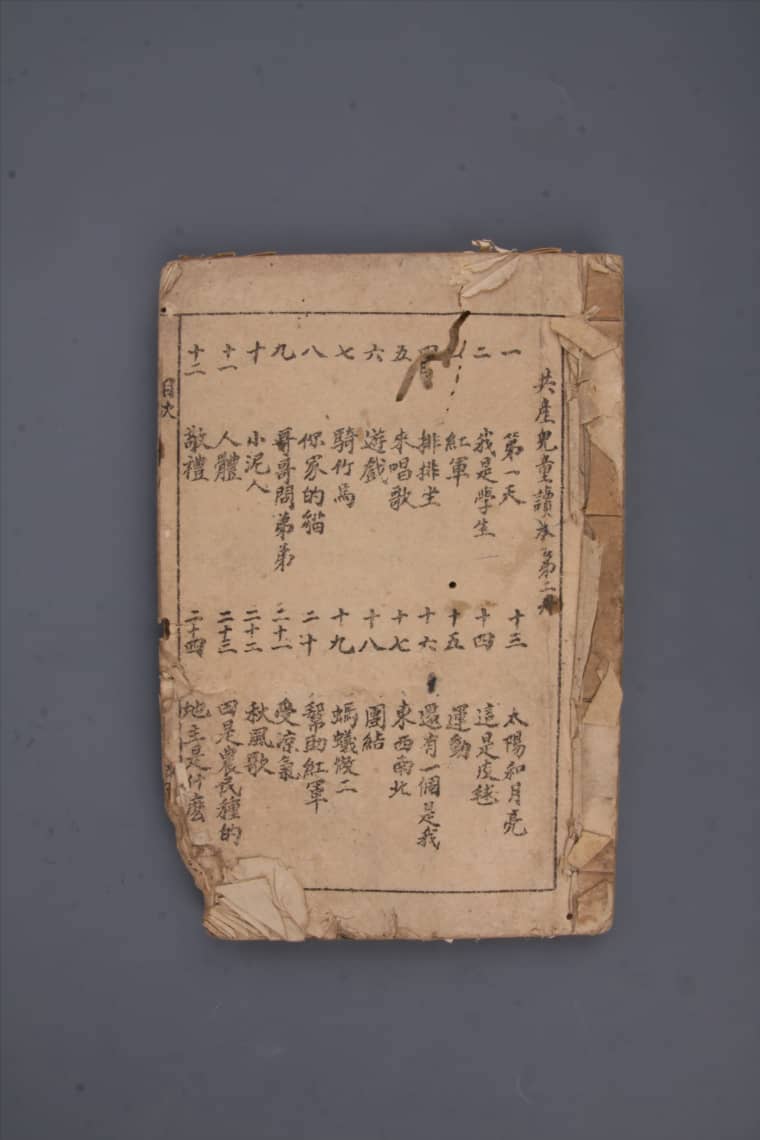 共產兒童讀本第二册
一 第一天
二 我是學生
三 紅軍
四 排排坐
五 來唱歌
六 遊戲
七 騎竹馬
八 你家的貓
九 哥哥問弟弟
十 小泥人
十一 人體
十二 敬禮
十三 太陽和月亮
十四 這是皮毬
十五 運動
十六 還有一個是我
十七 東西南北
十八 團結
十九 螞蟻
二十 幫助紅軍
二十一 受涼氣
二十二 秋風歌
二十三 田是農民種的
二十四 地主是什麽
目次